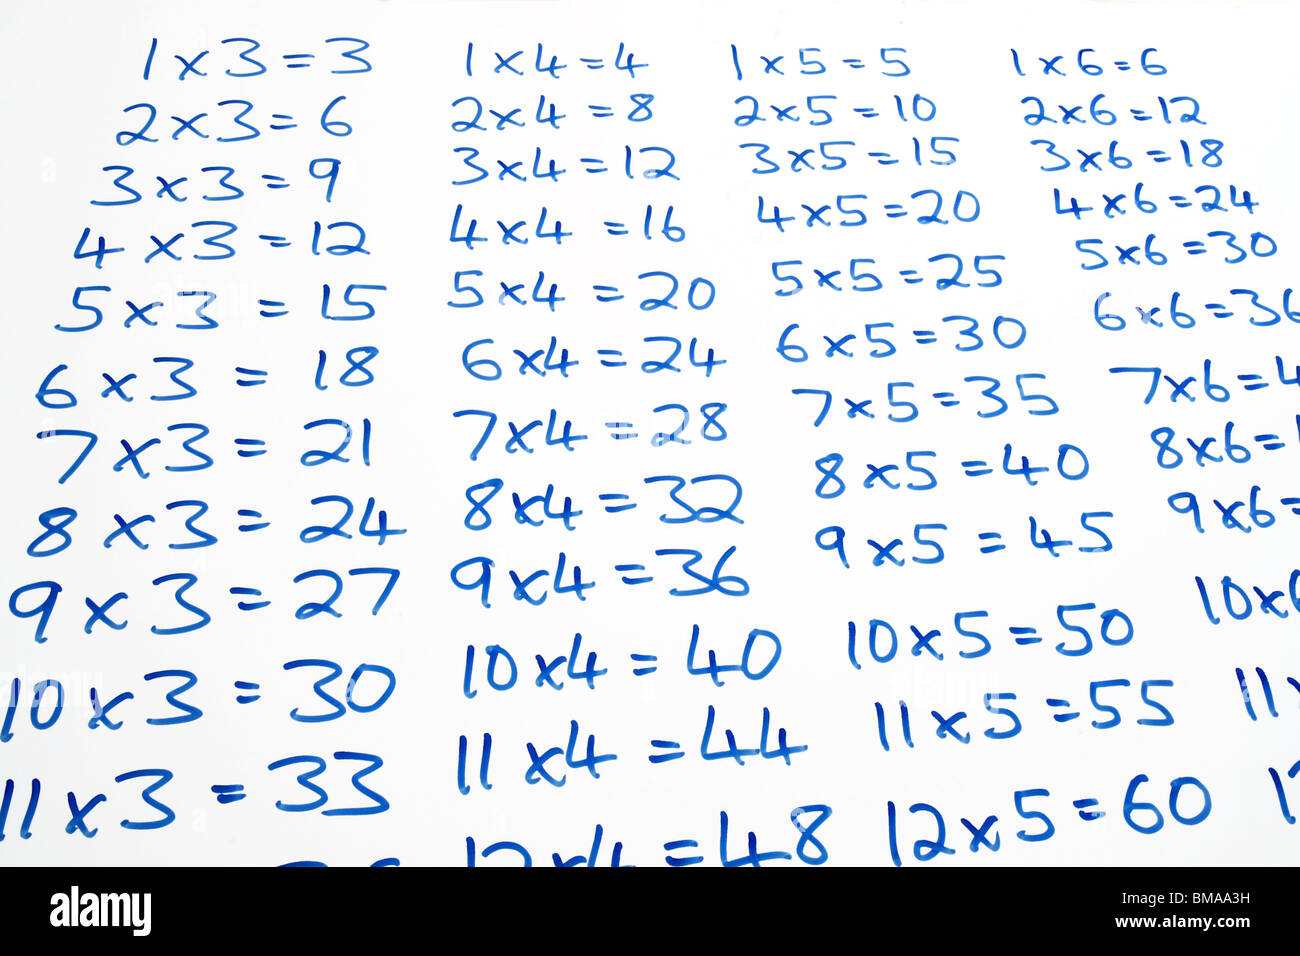 1 x 3 = 3
2 x 3 = 6
3 x 3 = 9
4 x 3 = 12
5 x 3 = 15
6 x 3 = 18
7 x 3 = 21
8 x 3 = 24
9 x 3 = 27
10 x 3 = 30
11 x 3 = 33
1 x 4 = 4
2 x 4 = 8
3 x 4 = 12
4 x 4 = 16
5 x 4 = 20
6 x 4 = 24
7 x 4 = 28
8 x 4 = 32
9 x 4 = 36
10 x 4 = 40
11 x 4 = 44
12 x 4 = 48
1 x 5 = 5
2 x 5 = 10
3 x 5 = 15
4 x 5 = 20
5 x 5 = 25
6 x 5 = 30
7 x 5 = 35
8 x 5 = 40
9 x 5 = 45
10 x 5 = 50
11 x 5 = 55
12 x 5 = 60
1 x 6 = 6
2 x 6 = 12
3 x 6 = 18
4 x 6 = 24
5 x 6 = 30
6 x 6 = 36
7 x 6 = 4
8 x 6 =
9 x 6 =
10 x 6
11
alamy
Image ID: BMAA3H
www.alamy.com